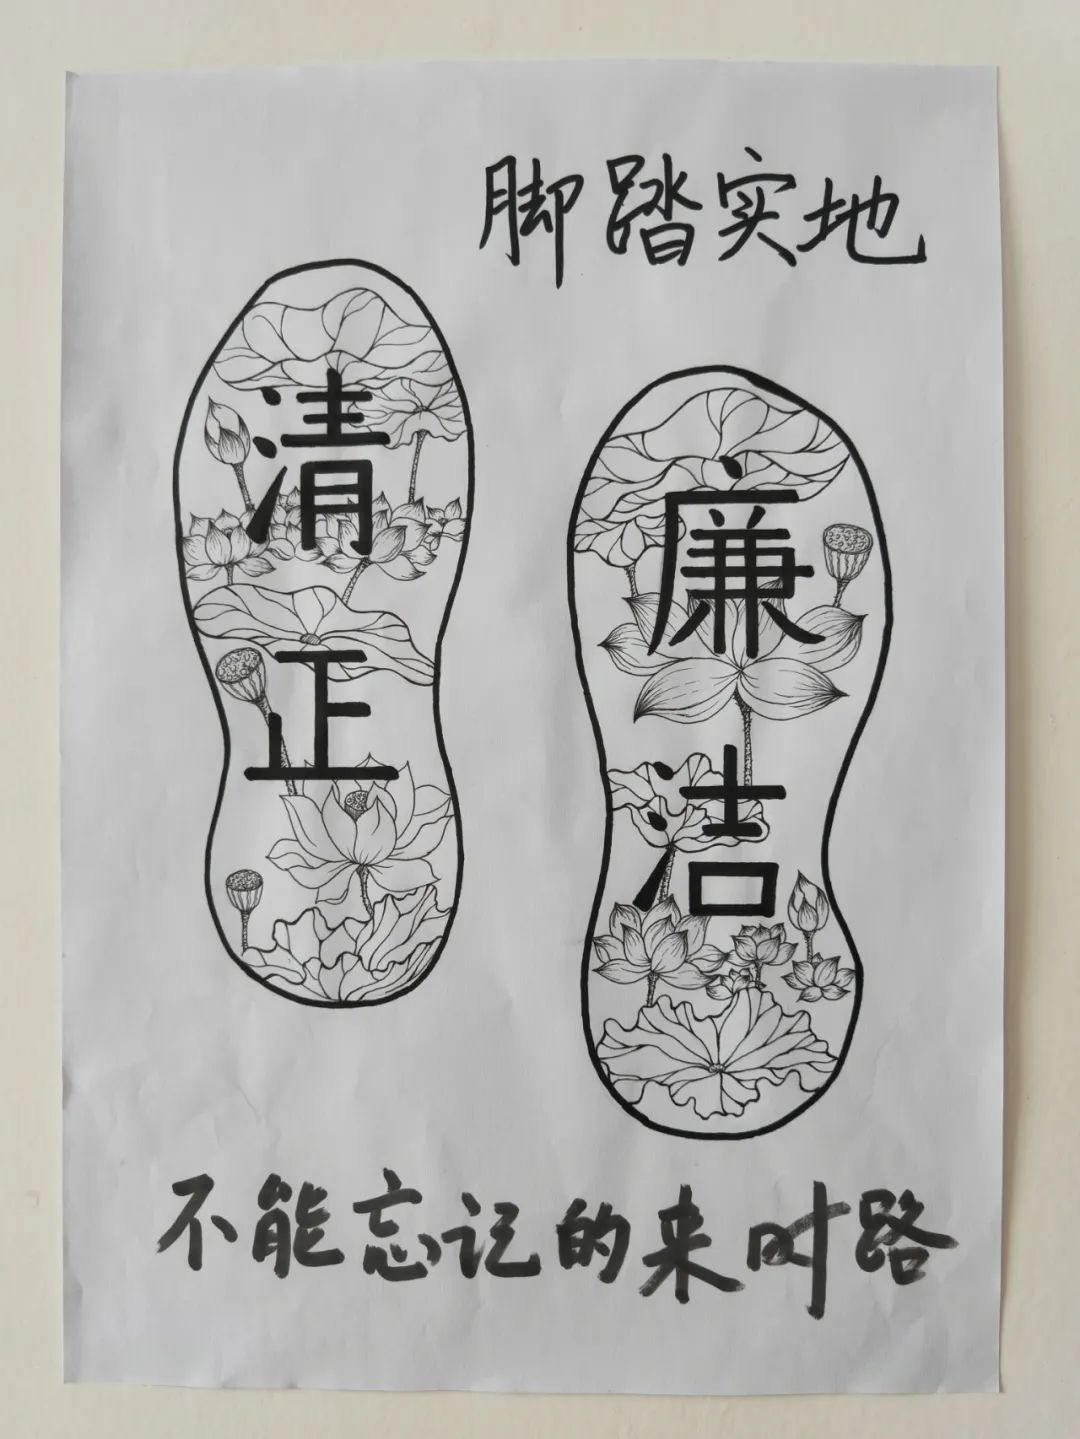 脚踏实地
清正
廉洁
不能忘记的来时路